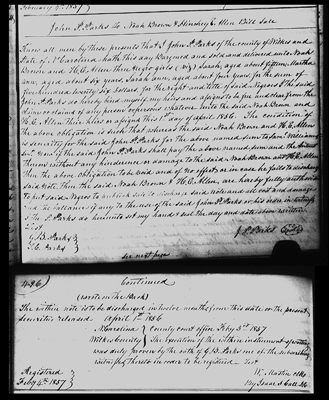 February 4, 1857
John S. Parks to Noah Brown & Hinckey E. Allen Bill Sale
Know all men by these presents that I John S. Parks of the county of Wilkes and
State of N Carolina hath this day Bargained and sold and delivered unto Noah
Brown and H. E. Allen three Negro girls (viz) Sarah, aged about fifteen, Martha
ann, aged about six years, Sarah ann, aged about four years, for the sum of
five hundred twenty six Dollars for the right and title of said Negroes I the said
John S. Parks do hereby bind myself my heirs and assigns to be free and clear from the
claim or claims of any persons expressive whatever. Unto the said Noah Brown and
H. E. Allen their heirs or assigns this 1st day of April 1856. The condition of
the above obligation is such that whereas the said Noah Brown and H. E. Allen
is security for the said John S. Parks for the above named sums to
Now if the said John S. Parks shall pay the above named sums and
without any hinderance or damage to the said Noah Brown and H. E. Allen
then the above obligation to be void and of no effect or in case he fails to
said Note, then the said Noah Brown & H. E. Allen, are hereby fully authorised
to put said Negroes to public sale to discharge said note and all cost and damage
and the ballance if any to the use of the said John S. Parks or his order in
I the S. Parks do hereunto set my hand & seal the day and date above written
Test
G. B. Parks
T. C. Parks
J. S. Parks Seal
see next page
(496) Continued
(wrote in the back)
The within note is to be discharged in twelve months from this date or the present
securities released April 1st 1856
N Carolina County court office Feby 3rd 1857
Wilkes County The execution of the within instrument of writing
was duly proven by the oath of G. B. Parks one of the subscribing
witnesses thereto in order to be registered Test
Registered W. Mastin clk
Feby 4th 1857 By Isaac S Call DC